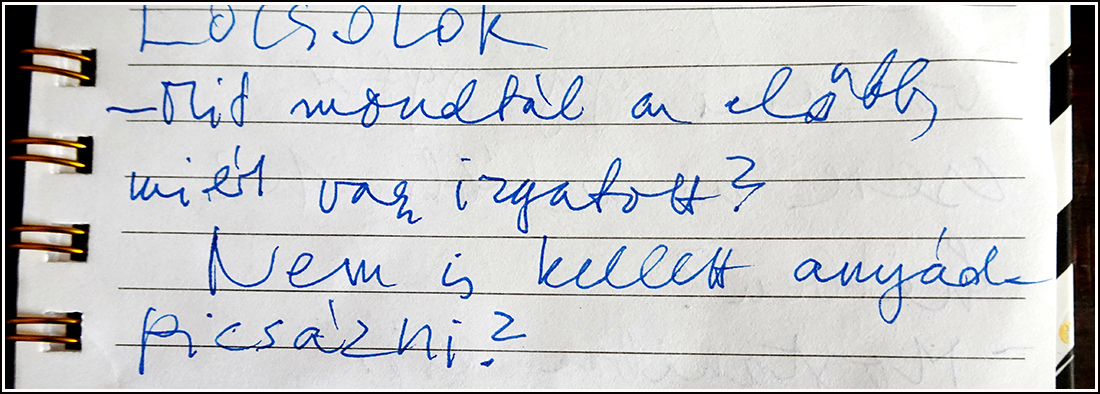 Locsolok
– Mit mondtál az előbb,
miért vagy izgatott?
Nem is kellett anyád-
picsázni?